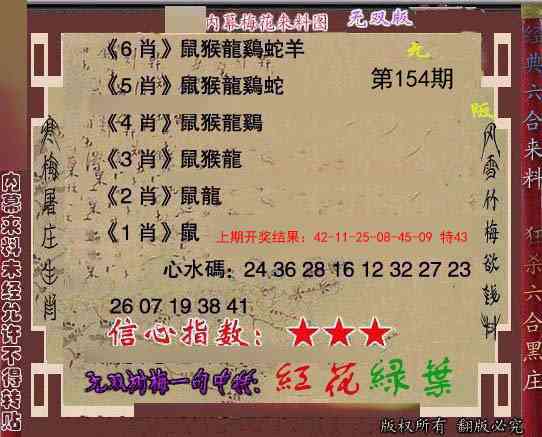 内幕梅花来料图 无双版
《6 肖》鼠猴龍鷄蛇羊
《5 肖》鼠猴龍鷄蛇
第154期
《4 肖》鼠猴龍鷄
《3 肖》鼠猴龍
《2 肖》鼠龍
《1 肖》鼠
上期开奖结果：42-11-25-08-45-09 特43
心水碼：24 36 28 16 12 32 27 23
26 07 19 38 41
信心指数：★★★
无双 梅一句中特：紅花綠葉
版权所有 翻版必究
寒梅屠庄生肖
风雪竹梅欲钱料
内幕来料未经允许不得转贴
经典六合来料 狂杀六合黑庄